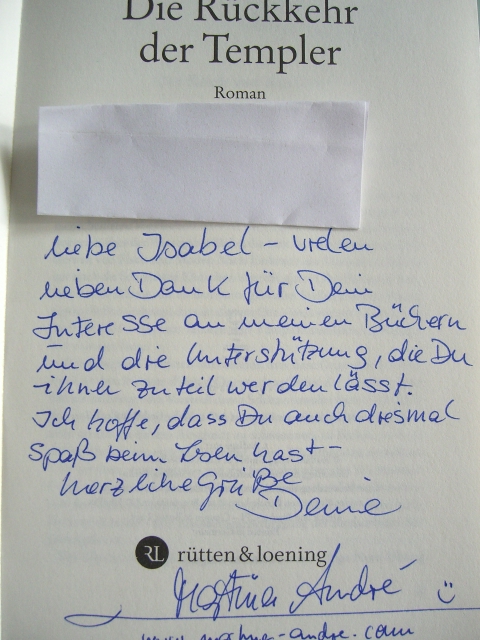 Die Rückkehr
der Templer
Roman
Liebe Isabel – vielen
lieben Dank für Dein
Interesse an meinen Büchern
und die Unterstützung, die Du
ihnen zuteil werden lässt.
Ich hoffe, dass Du auch diesmal
Spaß beim Lesen hast –
herzliche Grüße
Deine
RL rütten & loening
Martina André
www.martina-andre.com